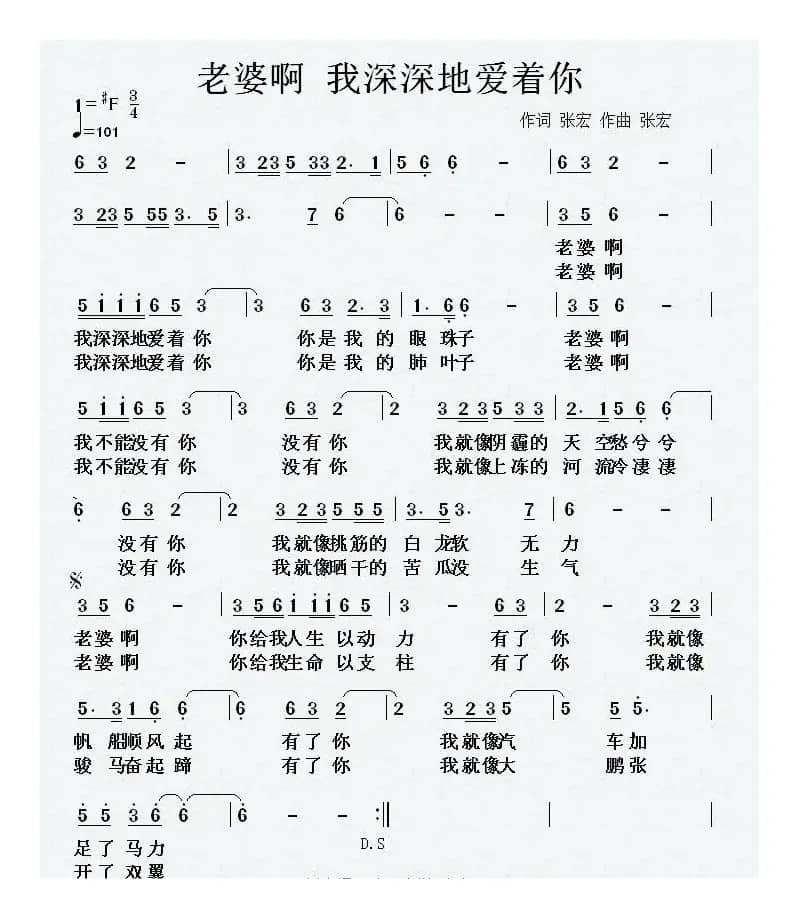 老婆啊 我深深地爱着你
1=#F 3/4
♩=101
作词 张宏 作曲 张宏
6 3 2 - | 3 2 3 5 3 3 2· 1 | 5 6 6 - | 6 3 2 - |
3 2 3 5 5 5 3· 5 | 3· 7 6 | 6 - - | 3 5 6 - |
老婆啊
老婆啊
5 i i i 6 5 3 | 3 6 3 2· 3 | 1· 6 6 - | 3 5 6 - |
我深深地爱着你 你是我的眼珠子 老婆啊
我深深地爱着你 你是我的肺叶子 老婆啊
5 i i 6 5 3 | 3 6 3 2 | 2 3 2 3 5 3 3 | 2· 1 5 6 6 |
我不能没有你 没有你 我就像阴霾的天空愁兮兮
我不能没有你 没有你 我就像上冻的河流冷凄凄
6 6 3 2 | 2 3 2 3 5 5 5 | 3· 5 3· 7 | 6 - - |
没有你 我就像挑筋的白龙软无力
没有你 我就像晒干的苦瓜没生气
3 5 6 - | 3 5 6 i i i 6 5 | 3 - 6 3 | 2 - 3 2 3 |
老婆啊 你给我人生以动力 有了你 我就像
老婆啊 你给我生命以支柱 有了你 我就像
5· 3 1 6 6 | 6 6 3 2 | 2 3 2 3 5 | 5 5 5· |
帆船顺风起 有了你 我就像汽车加
骏马奋起蹄 有了你 我就像大鹏张
5 5 3 6 6 | 6 - - :||
D.S
足了马力
开了双翼